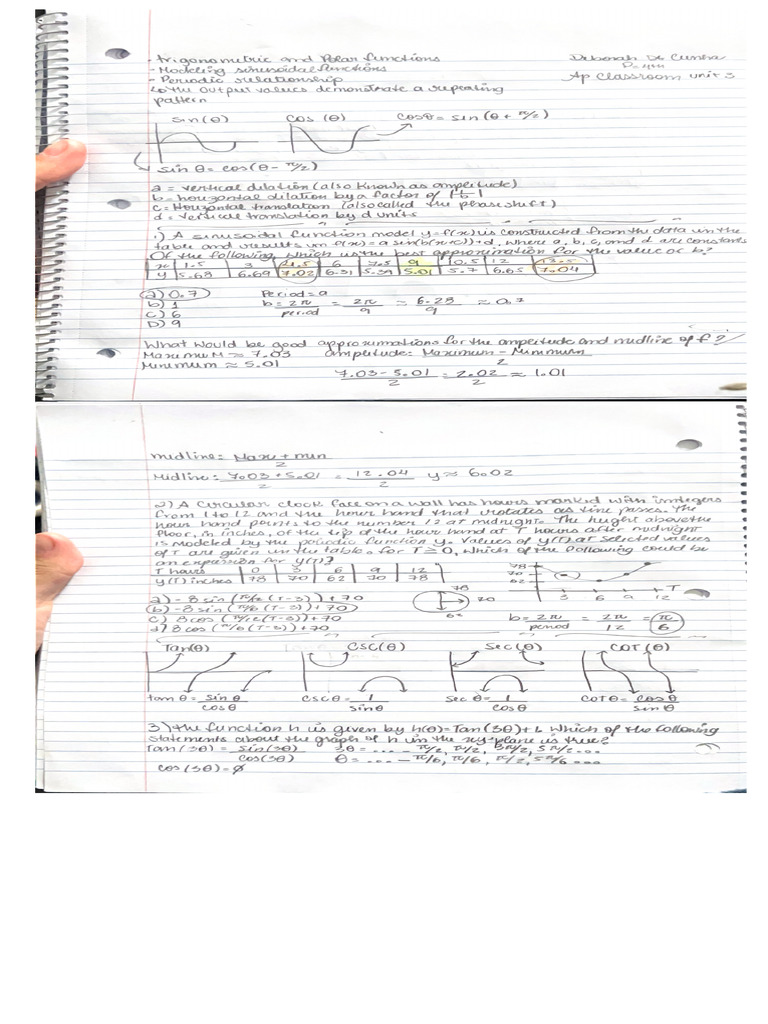 - trigonometric and Polar functions
Deborah De Cunha
- Modeling sinusoidal functions
- Periodic relationship
AP Classroom unit 3
↳ the output values demonstrate a repeating
pattern
sin(θ) cos(θ) cosθ = sin(θ + π/2)
sin θ = cos(θ - π/2)
a = vertical dilation (also known as amplitude)
b = horizontal dilation by a factor of |1/b|
c = Horizontal translation (also called the phase shift)
d = vertical translation by d units
1) A sinusoidal function model y=f(x) is constructed from the data in the
table and results in f(x)= a sin(b(x+c))+d, where a, b, c, and d are constants
Of the following, which is the best approximation for the value of b?
x | 1.5 | 3 | 4.5 | 6 | 7.5 | 9 | 10.5 | 12 | 13.5
y | 5.68 | 6.69 | 7.02 | 6.31 | 5.39 | 5.01 | 5.7 | 6.65 | 7.04
a) 0.7 Period = 9
b) 1 b = 2π/period = 2π/9 ≈ 6.28/9 ≈ 0.7
C) 6
D) 9
What would be good approximations for the amplitude and midline of f?
Maximum ≈ 7.03 amplitude: Maximum - Minimum / 2
Minimum ≈ 5.01
7.03 - 5.01 / 2 = 2.02 / 2 ≈ 1.01
midline: Max + min / 2
Midline: 7.03 + 5.01 / 2 = 12.04 / 2 y ≈ 6.02
2) A Circular clock face on a wall has hours marked with integers
from 1 to 12 and the hour hand that rotates as time passes. The
hour hand points to the number 12 at midnight. The height above the
floor, in inches, of the tip of the hour hand at T hours after midnight
is modeled by the periodic function y. Values of y(T) at selected values
of T are given in the table. for T ≥ 0, which of the following could be
an expression for y(T)?
T hours | 0 | 3 | 6 | 9 | 12
y(T) inches | 78 | 70 | 62 | 70 | 78
78
70
62
3 6 9 12 T
a) -8 sin(π/12 (T-3)) + 70
(b) -8 sin(π/6 (T-3)) + 70
c) 8 cos(π/12 (T-3)) + 70
d) 8 cos(π/6 (T-3)) + 70
78
70
62
b = 2π/period = 2π/12 = π/6
Tan(θ) CSC(θ) Sec(θ) COT(θ)
tan θ = sinθ/cosθ CSCθ = 1/sinθ Sec θ = 1/cosθ COTθ = cosθ/sinθ
3) the function h is given by h(θ)=Tan(3θ)+ Which of the following
statements about the graph of h in the xy-plane is true?
Tan(3θ) = sin(3θ)/cos(3θ) 3θ = ... -π/2, π/2, 3π/2, 5π/2 ...
θ = ... -π/6, π/6, π/2, 5π/6 ...
cos(3θ) = 0